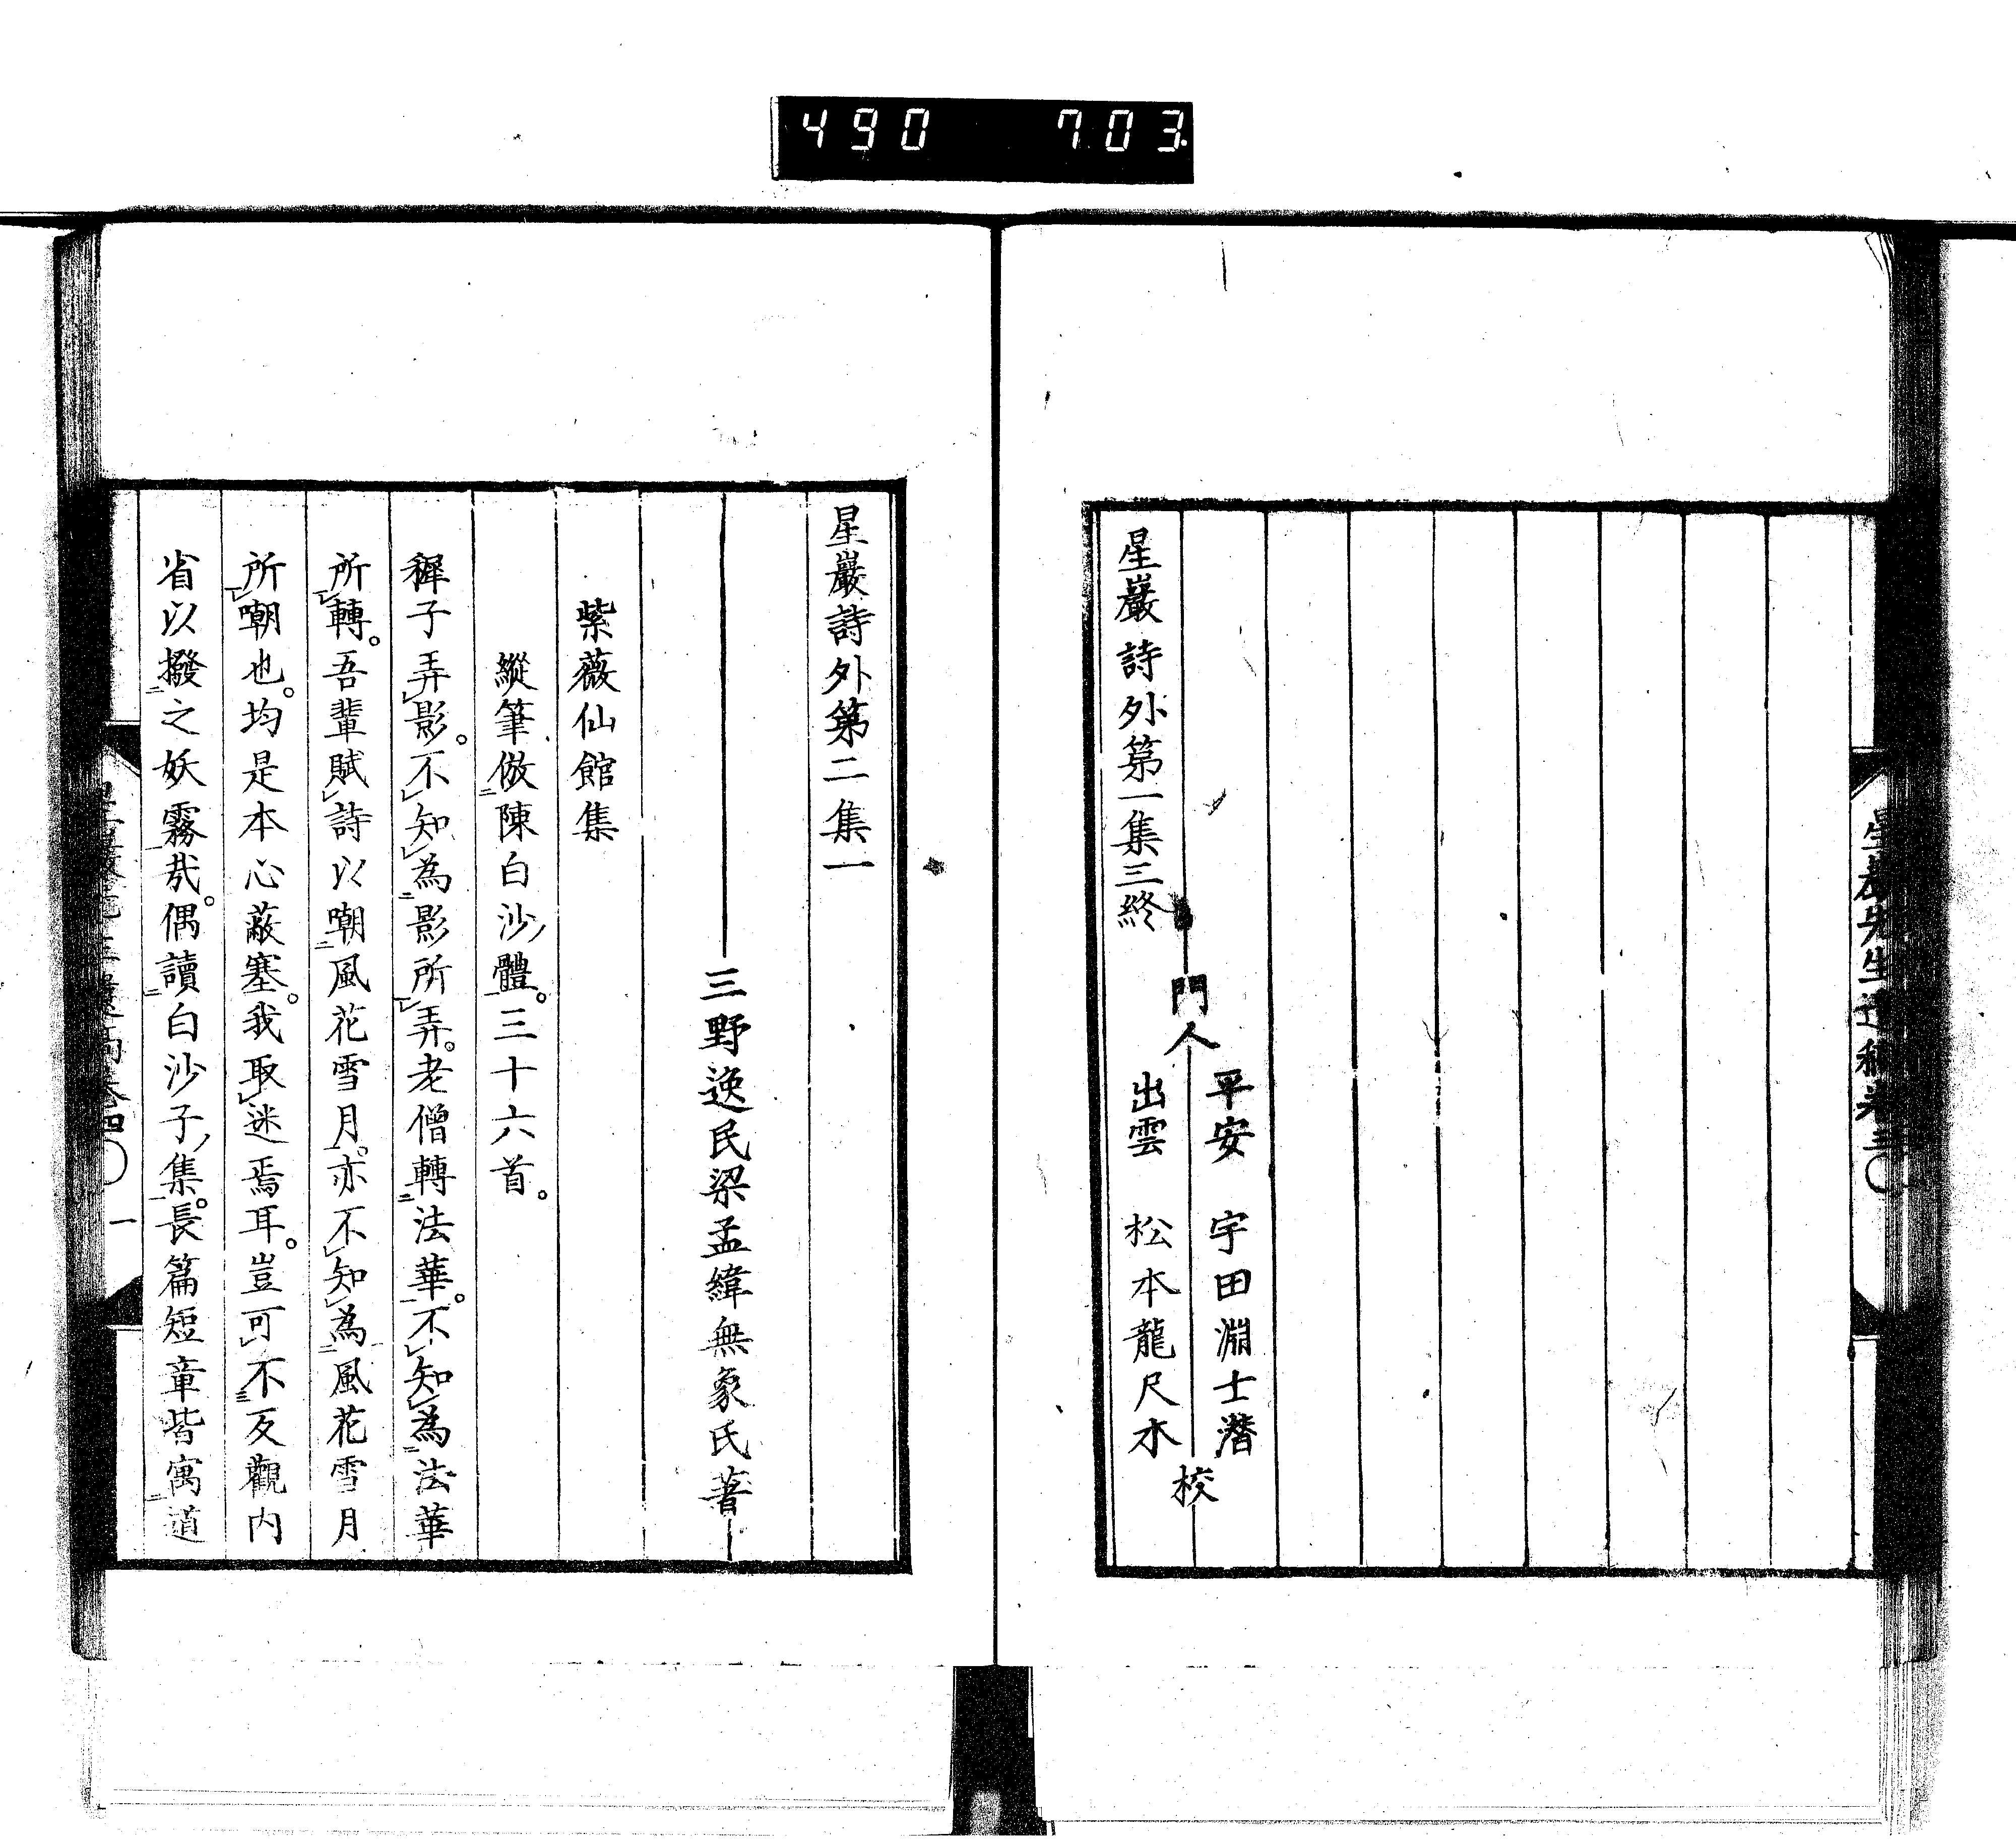 490 703
星巖先生遺稿卷三
門人 平安 宇田淵士潛
出雲 松本龍尺木 校
星巖詩外第一集三終
星巖詩外第二集一
三野逸民梁孟緯無象氏著
紫薇仙館集
縱筆倣陳白沙體。三十六首。
穉子弄影。不知為影所弄。老僧轉法華。不知為法華
所轉。吾輩賦詩以嘲風花雪月。亦不知為風花雪月
所嘲也。均是本心蔽塞。我取迷焉耳。豈可不反觀内
省以撥之妖霧哉。偶讀白沙子集。長篇短章皆寓道
一